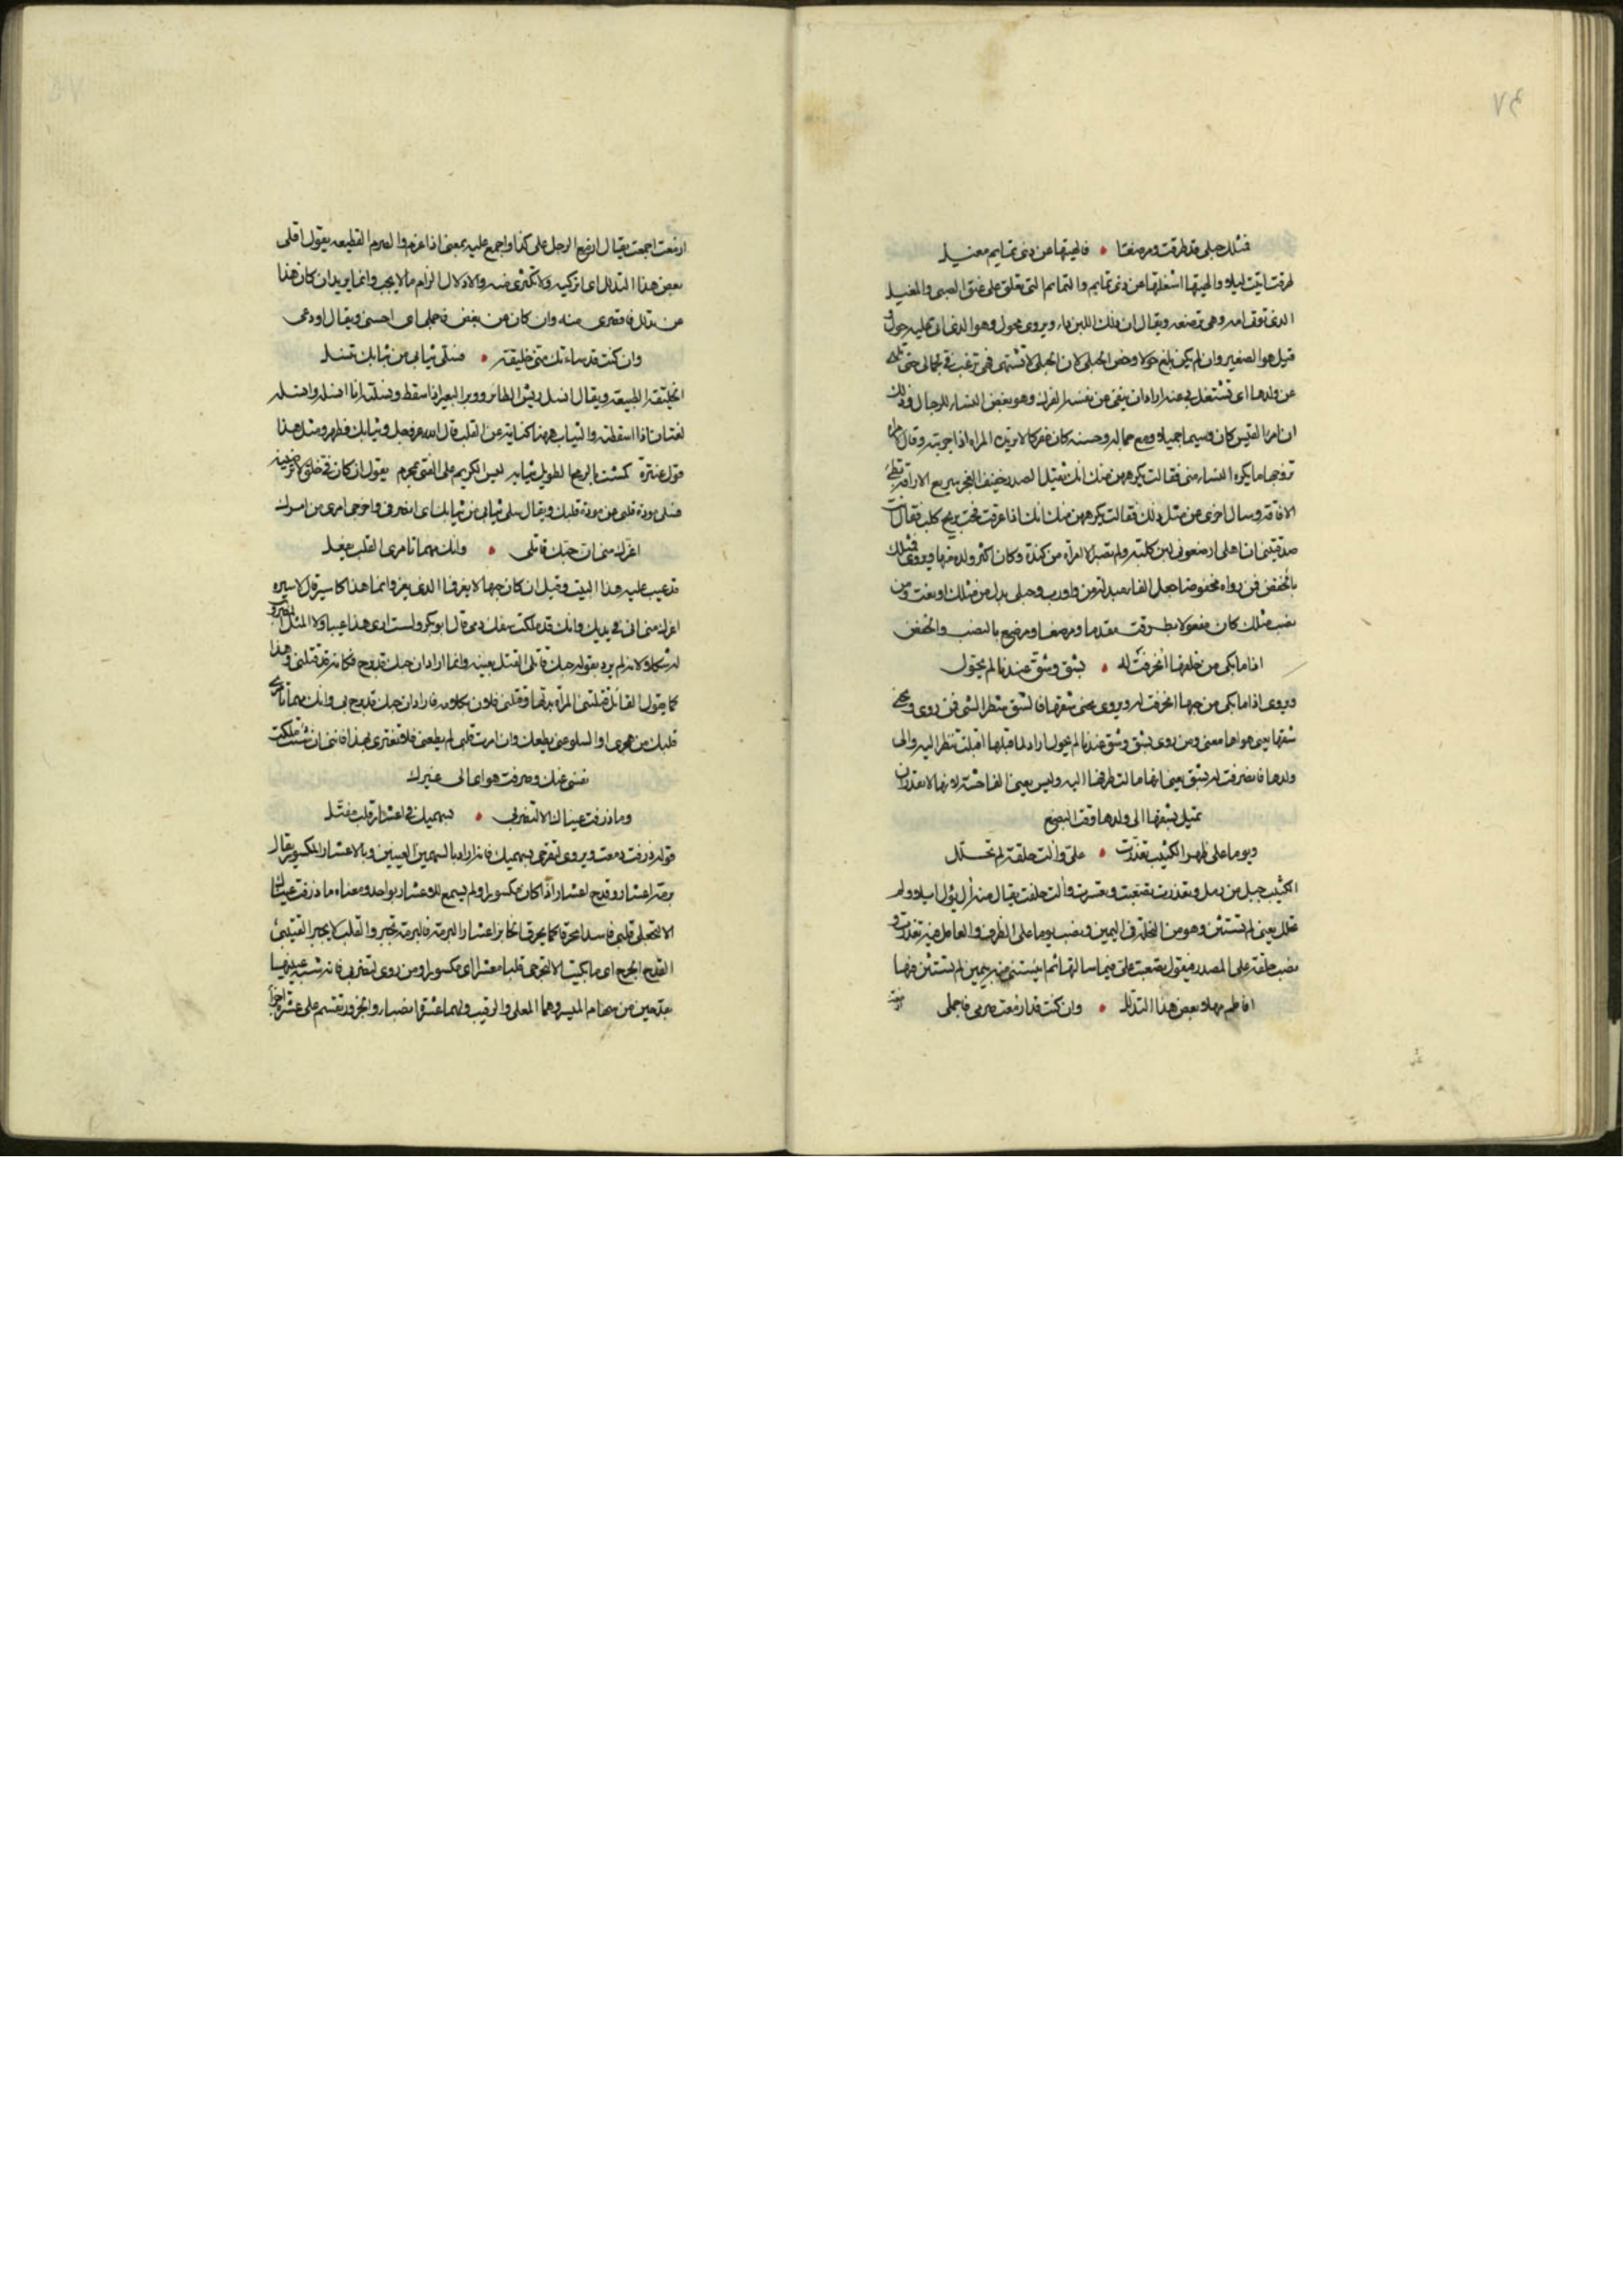 ٧٤
فمثلك حبلى قد طرقت ومرضعا • فالهيتها عن ذى تمايم مغيل
طرقت اتيت ليلا والهيتها اشغلتها عن ذى تمايم والتمايم التى تعلق على عنق الصبى والمغيل
الذى توتى امه وهى ترضعه ويقال ان ذلك اللبن داء ويروى محول وهو الذى اتى عليه حول و
قيل هو الصغير وان لم يكن بلغ حولا وخص الحبلى لان الحبلى لا تشتهى فهى ترغب فى جمالى حتى
عن ولدها اى تشتغل بى عنه اراد ان ينفى عن نفسه الفرك وهو بغض النساء للرجال وذلك
ان امرأ القيس كان وسيما جميلا ومع جماله وحسنه كان مفركا لا تريده المراه اذا جربته وقال
تزوجها ما يكره النساء منى فقالت يكرهن منك انك ثقيل الصدر خفيف العجز سريع الاراقة بطئ
الافاقة وسال اخرى عن مثل ذلك فقالت يكرهن منك انك اذا عرقت فحت بريح كلب فقال انت
صدقتينى ان اهلى ارضعونى لبن كلبة ولم تصبر الا امرأة من كندة وكان اكثر ولده منها ويروى فمثلك
بالخفض فمن رواه مخفوضا جعل الفاء بدلا من واو رب وحبلى بدل من مثلك او نعت ومن
نصب مثلك كان مفعولا بطرقت مقدما ومرضعا ومرضع بالنصب والخفض
اذا ما بكى من خلفها انحرفت له • بشق وشق عندنا لم يحول
ويروى اذا ما بكى من حبها انحرفت له ويروى تحتى شقها فالشق شطر الشى فمن روى وتحتى
شقها يعنى هواها معنى ومن روى بشق وشق عندنا لم يحول اراد لما قبلها اقبلت تنظر اليه والى
ولدها فانصرفت له بشق يعنى انها امالت طرفها اليه وليس يعنى الفاحشة لانها لا تقدر ان
تميل بشقها الى ولدها وقت البضع
ويوما على ظهر الكثيب تعذرت • على وآلت حلفة لم تحلل
الكثيب جبل من رمل وتعذرت تصعبت وتعسرت وآلت حلفت يقال منه آل يؤل ايلاء ولم
تحلل يعنى لم تستثن وهو من التحلة فى اليمين ونصب يوما على الظرف والعامل فيه تعذرت و
نصب حلفة على المصدر فيقول تصعبت على فيما سالتها ثم يستثنى من يمين لم تستثن منها
افاطم مهلا بعض هذا التدلل • وان كنت قد ازمعت صرمى فاجملى
ازمعت
٧٥
ازمعت اجمعت يقال ازمع الرجل على كذا واجمع عليه بمعنى اذا عزم والصرم القطيعه يقول اقلى
بعض هذا التدلل اى اتركيه ولا تكثرى منه والادلال الزام ما لا يجب وانما يريد ان كان هذا
عن تدلل فاقصرى منه وان كان عن بغض فاجملى اى احسنى ويقال اودعى
وان كنت قد ساءتك منى خليقة • فسلى ثيابى من ثيابك تنسل
الخليقة الطبيعة ويقال انسل ريش الطائر ووبر البعير اذا سقط ونسلته انا انسله وانسله
لغتان اذا اسقطته والثياب ههنا كناية عن القلب قال الله عز وجل وثيابك فطهر ومثل هذا
قول عنترة كمشت بالرمح الطويل ثيابه ليس الكريم على القنى بمحرم يقول ان كان فى خلقى لا ترضينه
فسلى مودة قلبى من مودة قلبك ويقال سلى ثيابى من ثيابك اى انصرفى واخرجى امرى من امرك
اغرك منى ان حبك قاتلى • وانك مهما تامرى القلب يفعل
قد عيب عليه هذا البيت وقيل ان كان حبها لا يغر فما الذى يغر وانما هذا كاسير قال لاسيره
اغرك منى انى فى يديك وانك قد ملكت سفك دمى قال ابو بكر ولست ارى هذا عيبا ولا المثل المضروب
له شكلا ولانه لم يرد بقوله حبك قاتلى القتل بعينه وانما اراد ان حبك قد برح فكانه قد قتلنى وهذا
كما يقول القائل قتلتنى المرأة بدلها وقتلنى فلان بكلامه فاراد ان حبك قد برح بى وانك مهما تامرى
قلبك من هجرى او السلو عنى يطعك وان امرت قلبى لم يطعنى فلا تغترى بهذا فاننى ان شئت ملكت
نفسى عنك وصرفت هواى الى غيرك
وما ذرفت عيناك الا لتضربى • بسهميك فى اعشار قلب مقتل
قوله ذرفت دمعت ويروى لتقدحى بسهميك فانه اراد بالسهمين العينين وبالاعشار المكسور يقال
برمة اعشار وقدح اعشار اذا كان مكسورا ولم يسمع للاعشار بواحد ومعناه ما ذرفت عيناك
الا لتجعلى قلبى فاسدا محرقا كما يحرق الخابز اعشار البرمة فالبرمة تجبر والقلب لا يجبر القتيبى
القدح الجرح اى ما بكيت الا لتجرحى قلبا معشرا اى مكسورا ومن روى لتضربى فانه شبه عينيها
بقدحين من سهام الميسر وهما المعلى والرقيب ولهما عشرة انصباء والجزور تقسم على عشرة اجزاء